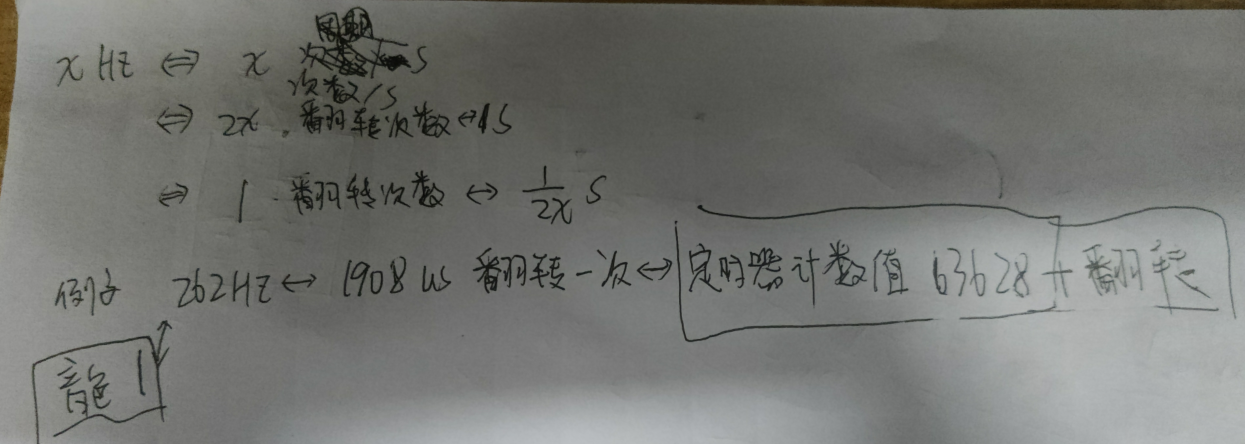 周期
x Hz ⇔ x 次数/s
⇔ 2x . 翻转次数 ↔ 1S
⇔ 1 翻转次数 ↔ 1/2x S
例子 262HZ ↔ 1908 us 翻转一次 ↔ 定时器计数值 63628 + 翻转
音色 1